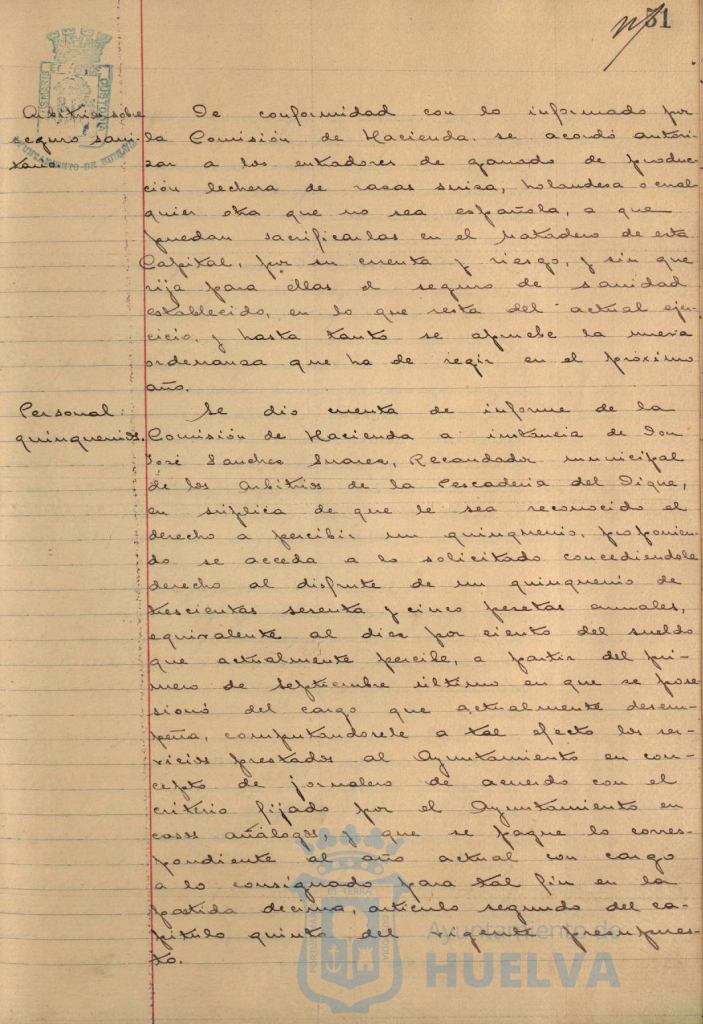 51
Arbitrios sobre
seguro sani-
tario.
De conformidad con lo informado por
la Comisión de Hacienda se acordó autori-
zar a los entradores de ganado de produc-
ción lechera de razas suiza, holandesa o cual
quier otra que no sea española, a que
puedan sacrificarlas en el matadero de esta
Capital, por su cuenta y riesgo, y sin que
rija para ellas el seguro de sanidad
establecido, en lo que resta del actual ejer-
cicio, y hasta tanto se apruebe la nueva
ordenanza que ha de regir en el próximo
año.
Personal:
quinquenios.
Se dio cuenta de informe de la
Comisión de Hacienda a instancia de Don
José Sanchez Suarez, Recaudador municipal
de los Arbitrios de la Pescaderia del Dique,
en súplica de que le sea reconocido el
derecho a percibir un quinquenio, proponien-
do se acceda a lo solicitado concediendole
derecho al disfrute de un quinquenio de
trescientas setenta y cinco pesetas anuales,
equivalente al diez por ciento del sueldo
que actualmente percibe, a partir del pri-
mero de Septiembre último en que se pose-
sionó del cargo que actualmente desem-
peña, computandosele a tal efecto los ser-
vicios prestados al Ayuntamiento en con-
cepto de jornalero de acuerdo con el
criterio fijado por el Ayuntamiento en
casos análogos, y que se pague lo corres-
pondiente al año actual con cargo
a lo consignado para tal fin en la
partida décima, artículo segundo del ca-
pitulo quinto del vigente presupues-
to.
Ayuntamiento de
HUELVA